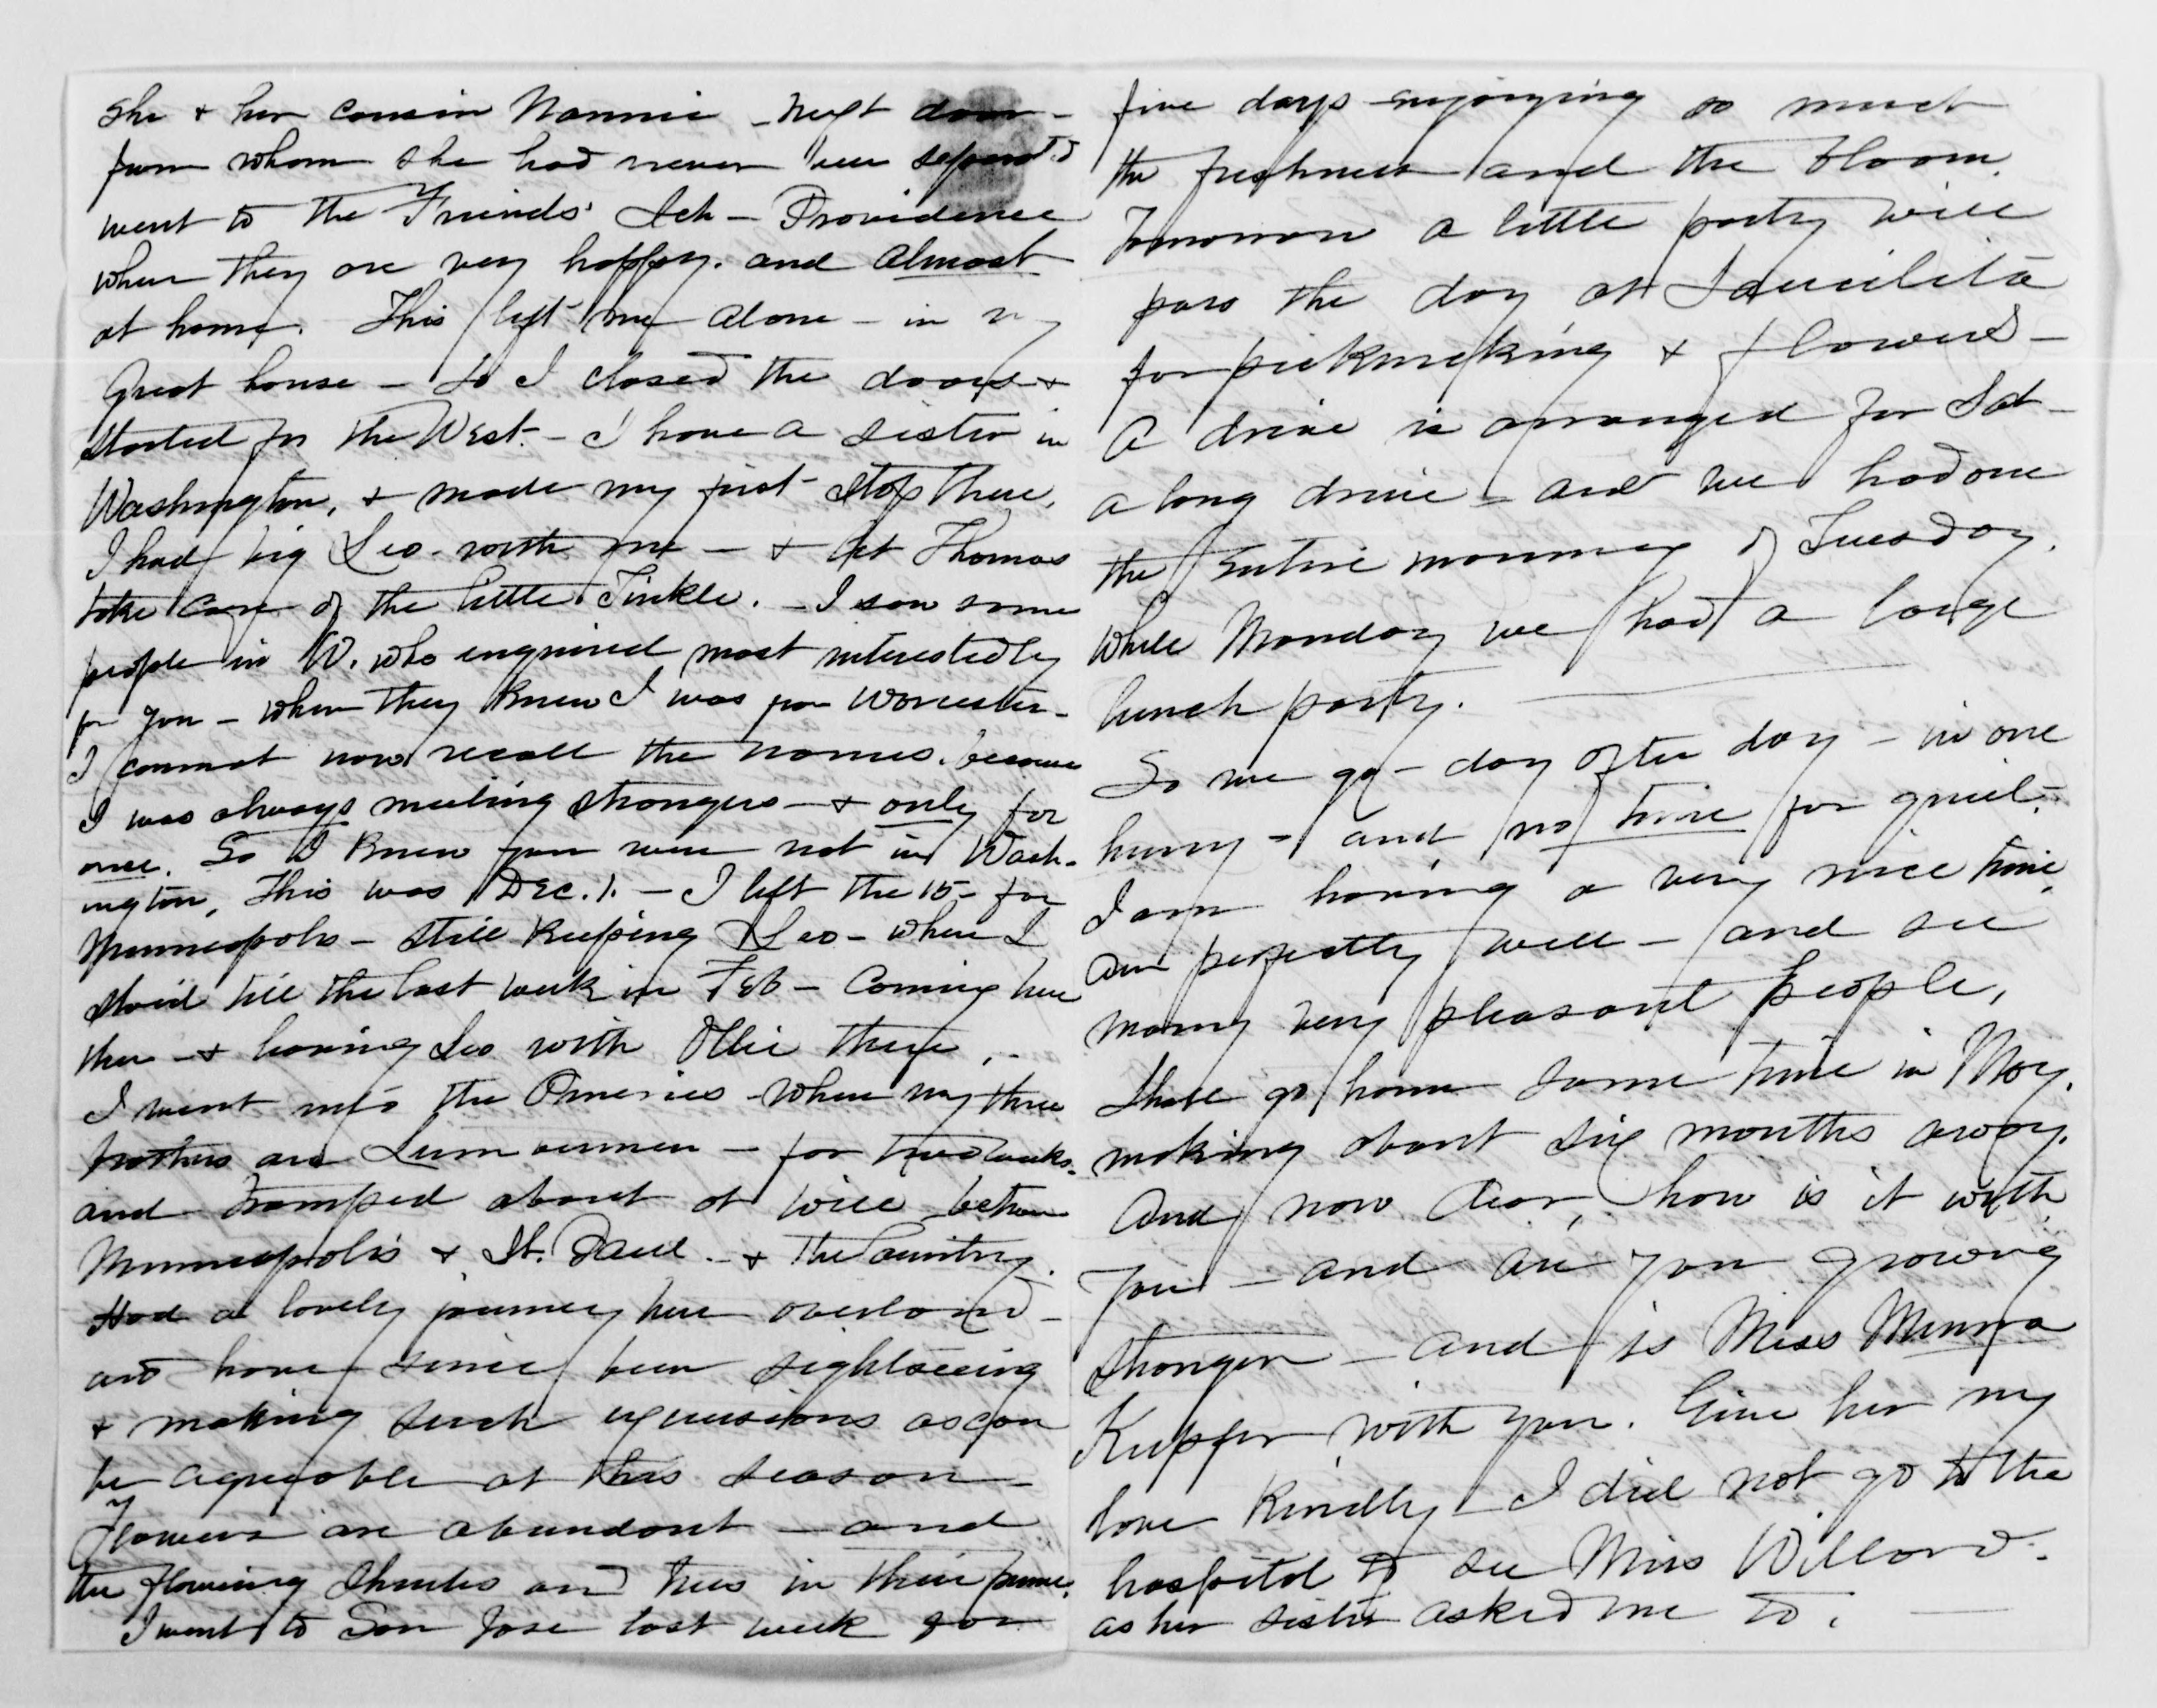 She & her cousin Nannie - next door -
from whom she had never been separated
went to the Friends' Sch - Providence
where they are very happy. and almost
at home. This left me alone - in my
great house - So I closed the doors &
started for the West. - I have a sister in
Washington, & made my first stop there,
I had big Leo - with me - & let Thomas
take care of the little Tinkle. - I saw some
people in W. who enquired most interestedly
for you - when they knew I was from Worcester -
I cannot now recall the names. because
I was always meeting strangers - & only for
once. So I knew you were not in Wash-
ington, This was Dec. 1. - I left the 15 - for
Minneapolis - still keeping Leo - where I
staid till the last week in Feb - Coming here
then - & leaving Leo with Ollie there, -
I went into the Pineries - where my three
brothers are Lumbermen - for two weeks.
and tramped about at will between
Minneapolis & St. Paul. - & the Country.
Had a lovely journey here overland -
and have since been sightseeing
& making such excursions as can
be agreeable at this season -
Flowers are abundant - and
the flowering shrubs and trees in their prime.
I went to San Jose last week for
five days - enjoying so much
the freshness and the bloom.
Tomorrow a little party will
pass the day at Saucilita
for picknicking & flowers -
A drive is arranged for Sat -
a long drive - and we had one
the entire morning of Tuesday.
While Monday we had a large
lunch party. -
So we go - day after day - in one
hurry - and no time for quiet. -
I am having a very nice time,
am perfectly well - and see
many very pleasant people,
Shall go home some time in May.
making about six months away.
And now dear, how is it with
you - and are you growing
stronger - and is Miss Minna
Kupfer with you. Give her my
love kindly - I did not go to the
hospital to see Miss Willard.
as her sister asked me to. -